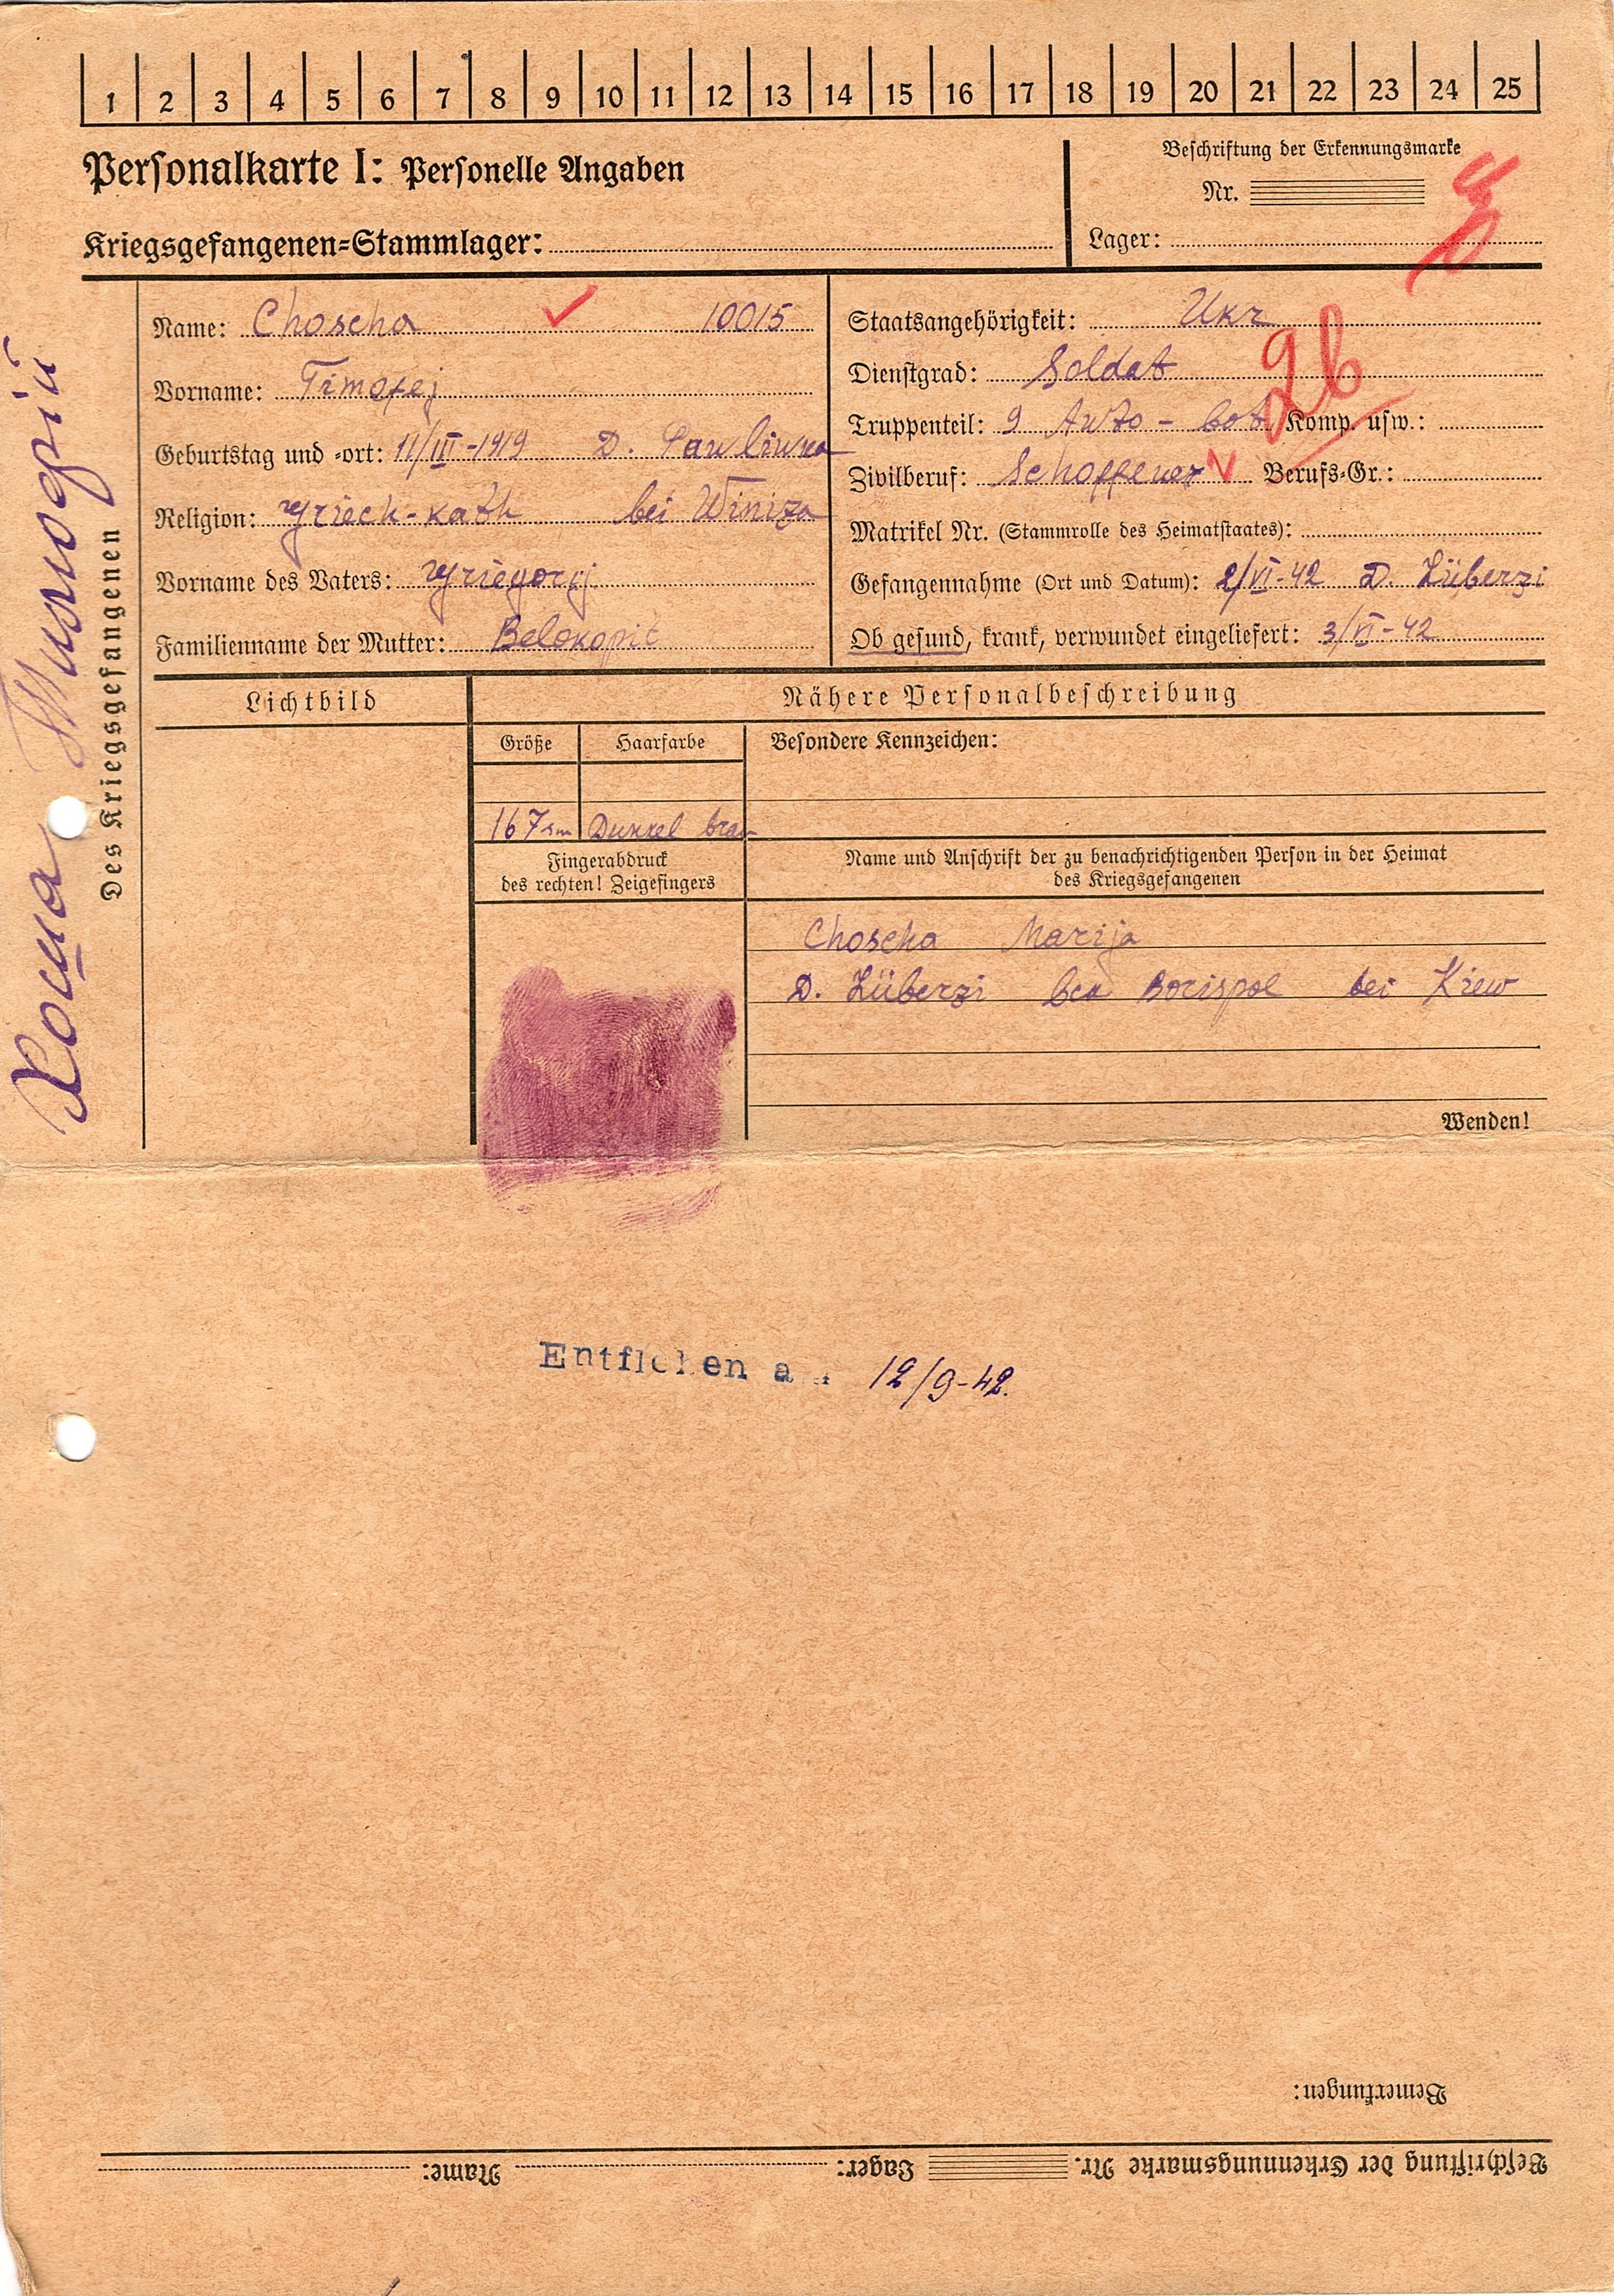 1 2 3 4 5 6 7 8 9 10 11 12 13 14 15 16 17 18 19 20 21 22 23 24 25
Personalkarte I: Personelle Angaben
Kriegsgefangenen=Stammlager:
Beschriftung der Erkennungsmarke
Nr.
Lager:
Des Kriegsgefangenen
Name: Choscha 10015
Vorname: Timofej
Geburtstag und =ort: 11/III-1919 D. Pawliwka
Religion: Griech-kath bei Winiza
Vorname des Vaters: Griegorij
Familienname der Mutter: Belokopit
Staatsangehörigkeit: Ukr
Dienstgrad: Soldat
2b
Truppenteil: 9 Auto - bat Komp. usw.:
Zivilberuf: Schoffeuer Berufs=Gr.:
Matrikel Nr. (Stammrolle des Heimatstaates):
Gefangennahme (Ort und Datum): 2/VI-42 D. Lüberzi
Ob gesund, krank, verwundet eingeliefert: 3/VI-42
Lichtbild
Nähere Personalbeschreibung
Größe Haarfarbe
Besondere Kennzeichen:
167sm Dunkel brau
Fingerabdruck
des rechten! Zeigefingers
Name und Anschrift der zu benachrichtigenden Person in der Heimat
des Kriegsgefangenen
Choscha Marija
D. Lüberzi bei Borispol bei Kiew
Wenden!
Entflohen am 12/9-42.
Bemerkungen:
Beschriftung der Erkennungsmarke Nr. Lager: Name: